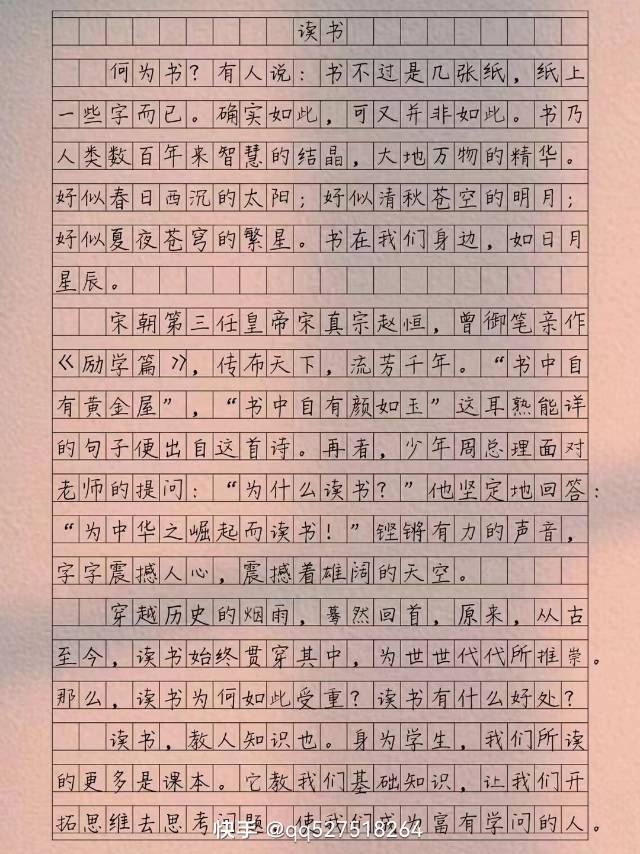 读书
何为书？有人说：书不过是几张纸，纸上
一些字而已。确实如此，可又并非如此。书乃
人类数百年来智慧的结晶，大地万物的精华。
好似春日西沉的太阳；好似清秋苍空的明月；
好似夏夜苍穹的繁星。书在我们身边，如日月
星辰。
宋朝第三任皇帝宋真宗赵恒，曾御笔亲作
《励学篇》，传布天下，流芳千年。“书中自
有黄金屋”，“书中自有颜如玉”这耳熟能详
的句子便出自这首诗。再者，少年周总理面对
老师的提问：“为什么读书？”他坚定地回答：
“为中华之崛起而读书！”铿锵有力的声音，
字字震撼人心，震撼着雄阔的天空。
穿越历史的烟雨，蓦然回首，原来，从古
至今，读书始终贯穿其中，为世世代代所推崇。
那么，读书为何如此受重？读书有什么好处？
读书，教人知识也。身为学生，我们所读
的更多是课本。它教我们基础知识，让我们开
拓思维去思考问题，使我们成为富有学问的人。
快手 @qq527518264